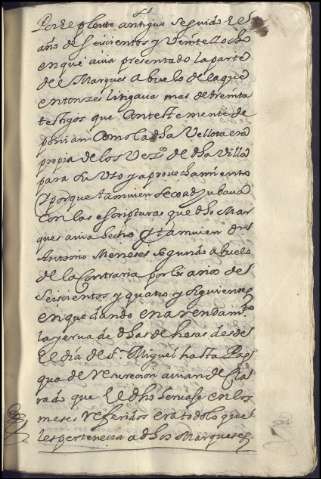 antigua seguido el
año de seiscientos y veinte ocho
en que avia presentado la parte
de el Marques Abuelo de la que
entonzes litigava mas de treinta
testigos que
ponian Como la dha Vellota era
propia de los Vezos de dha Villa
para su Uso y aprovechamiento
y porque tamvien se
Con las escripturas que dho Mar
ques avia hecho y tamvien Dn
Antonio Meneses segundo abuelo
de la Contraria por los años de
seiscientos y quatro y siguientes
en que dando en arrendamto
la yerva de dhas dehesas desde
el dia de Sn Miguel hasta Pas
qua de resurecion avian decla
rado que el dho en los
meses referidos era todo lo que
les pertenezia a dhos Marqueses